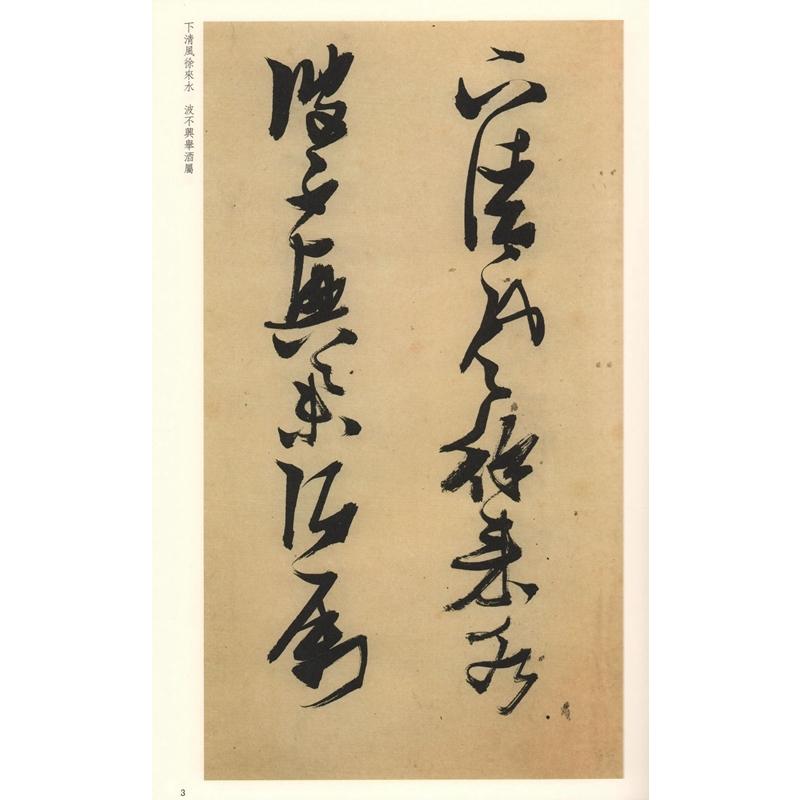 下清風徐來水
波不興舉酒屬
下清風徐來水　波不興舉酒屬
3